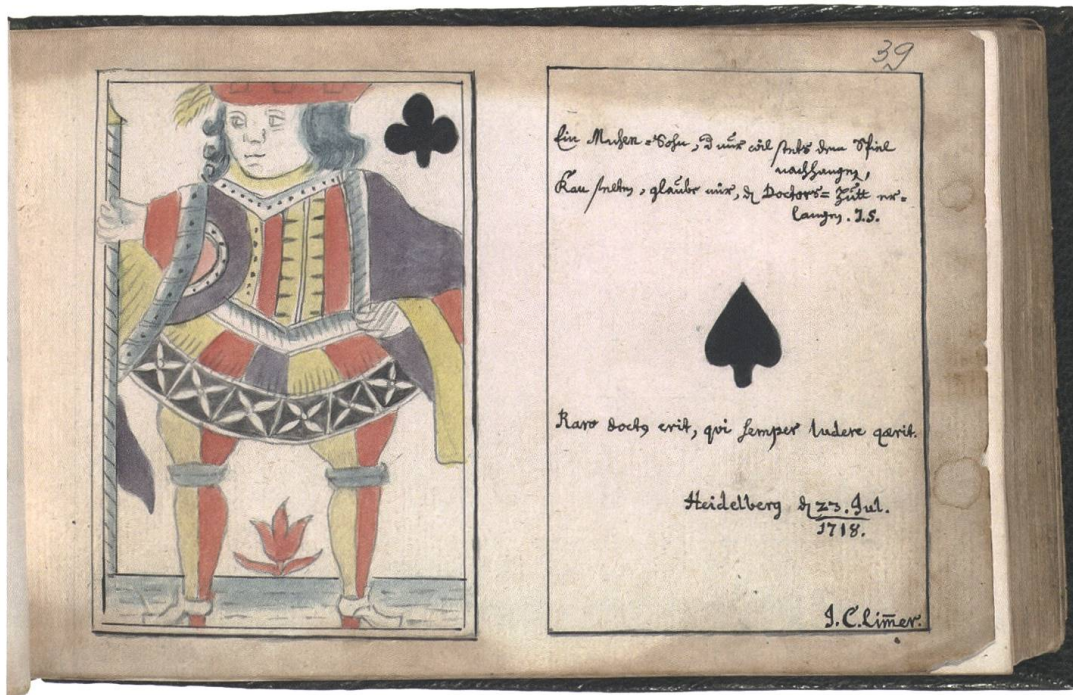 39
Ein Musen-Sohn, d nur wil stets dem Spiel
nachhangen,
Kan selten, glaube mir, den Doctors-Hutt er-
langen. J.S.
Raro doctꝰ erit, qvi semper ludere qærit.
Heidelberg d 23. Jul.
1718.
J. C. Lim̄er.